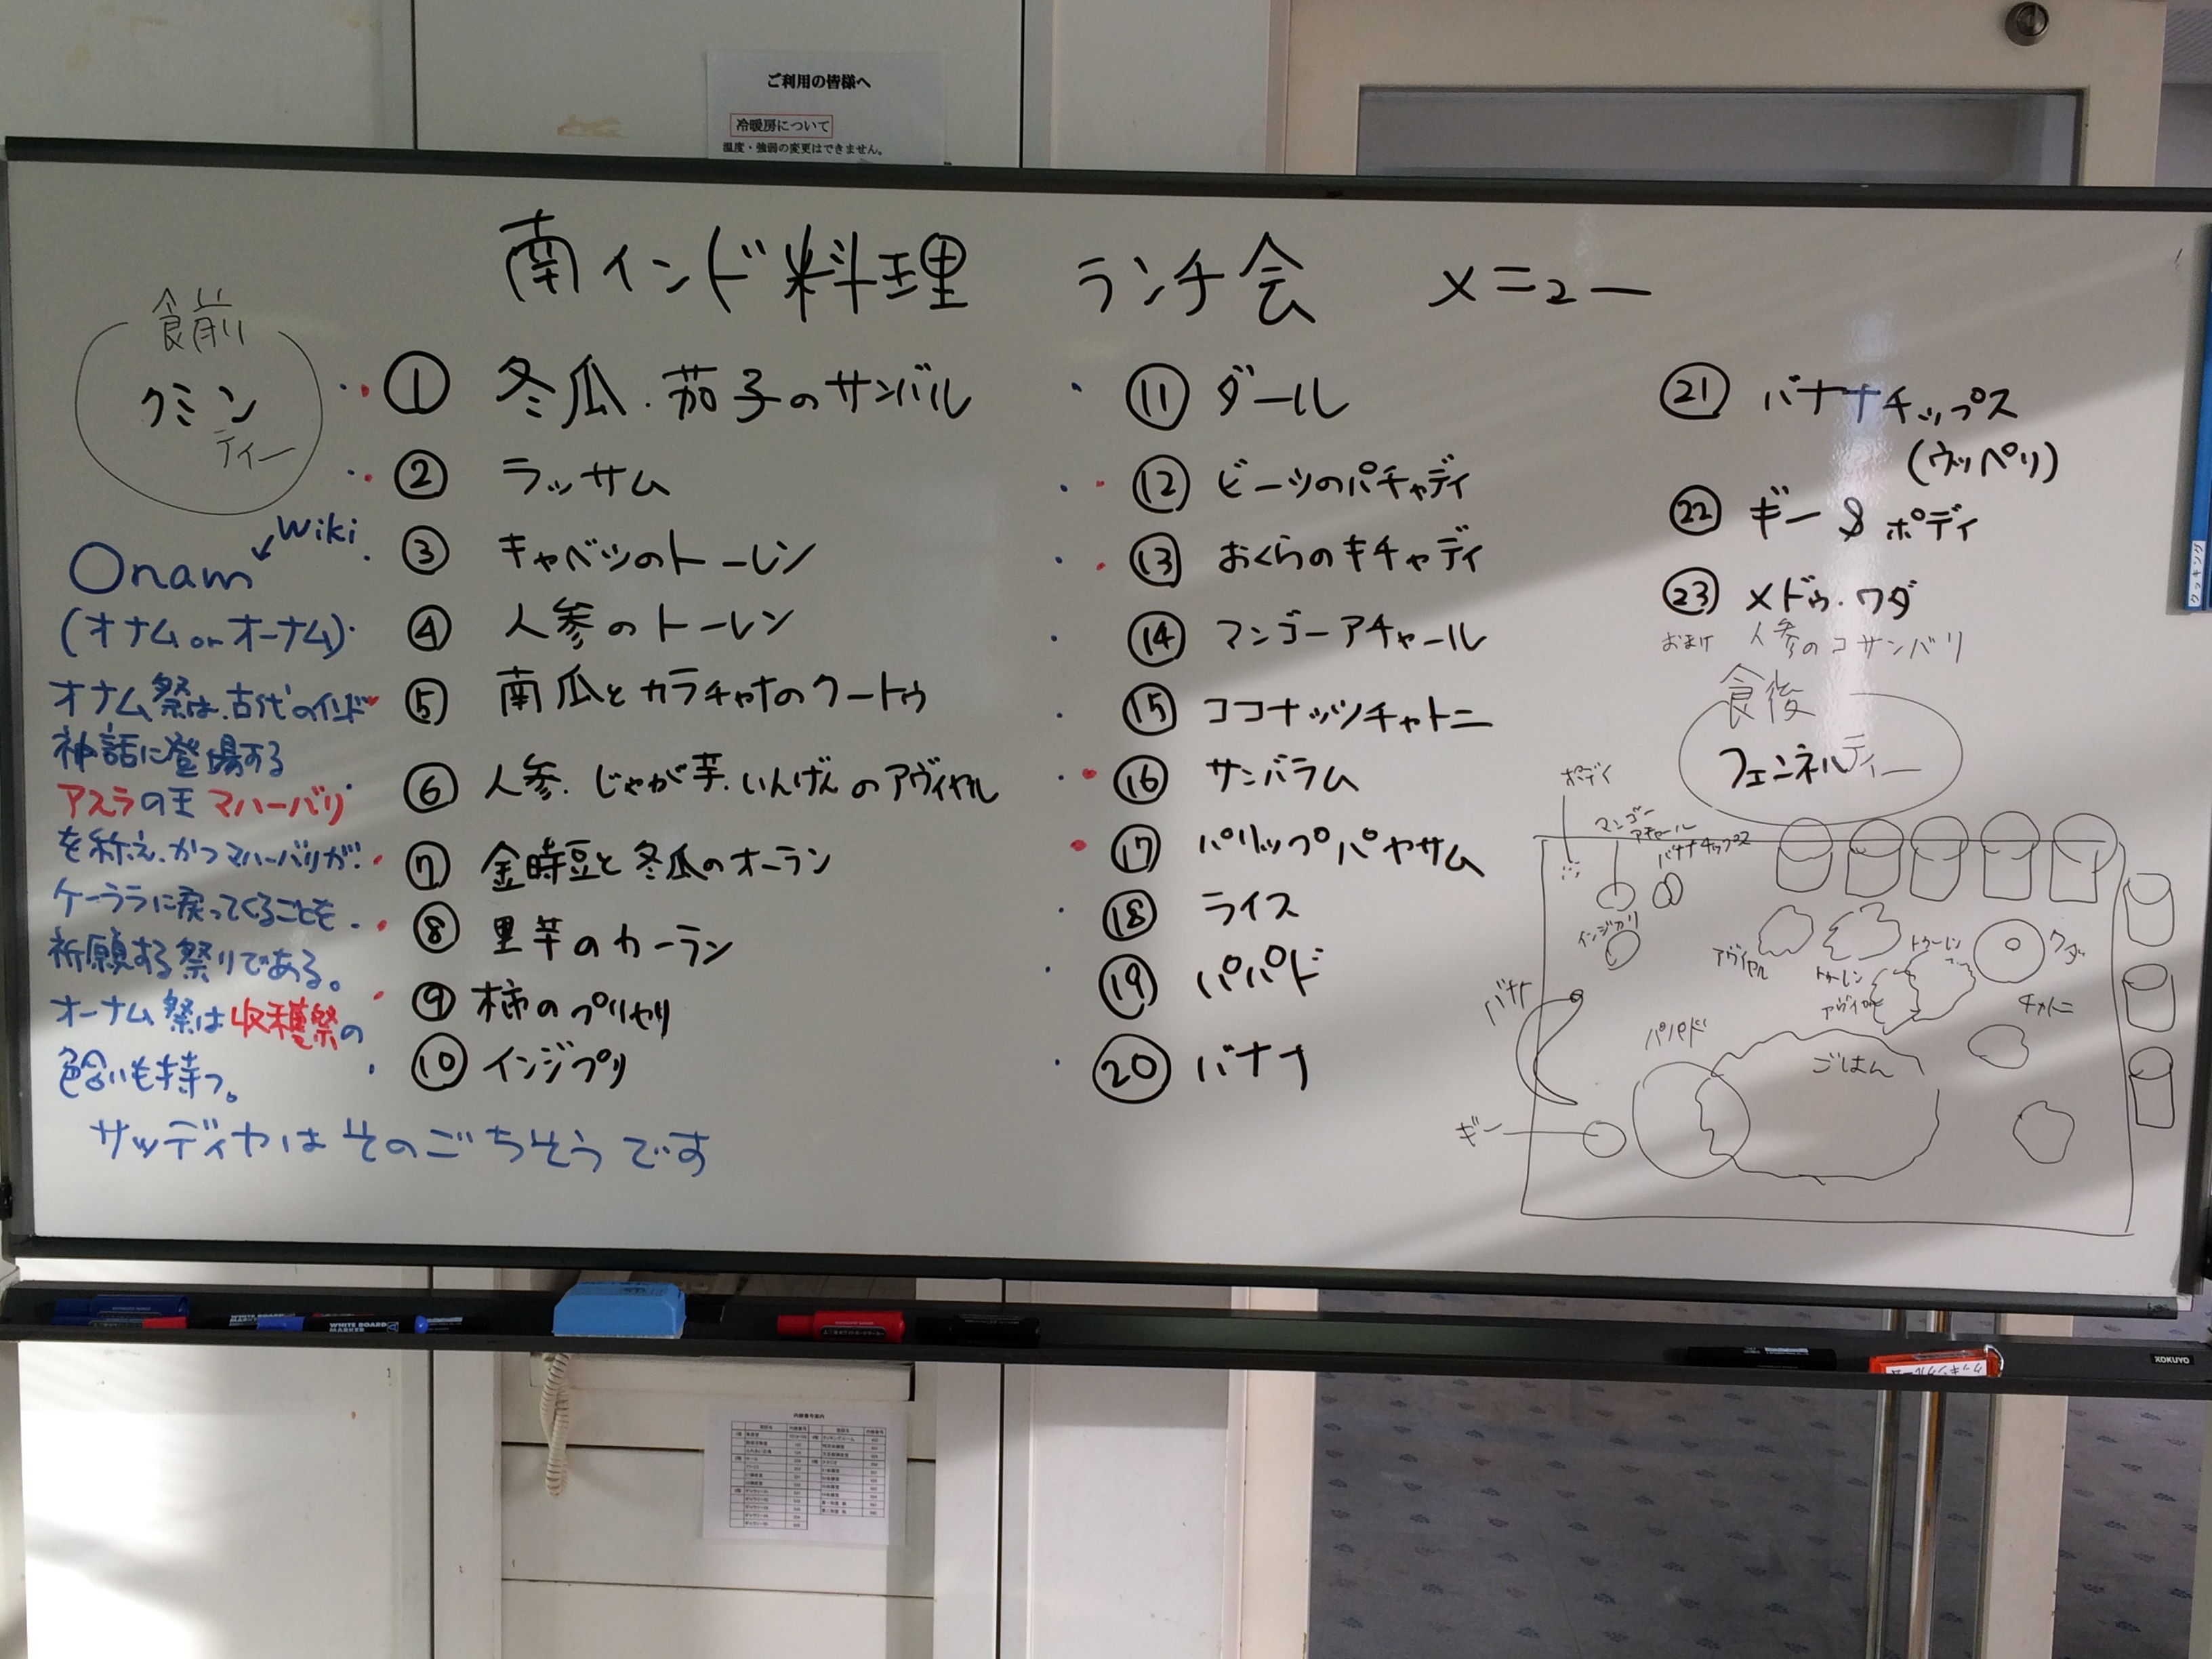 ご利用の皆様へ
冷暖房について
温度・強弱の変更はできません。
南インド料理 ランチ会 メニュー
食前
クミン
ティー
① 冬瓜・茄子のサンバル
② ラッサム
③ キャベツのトーレン
④ 人参のトーレン
⑤ 南瓜とカラチャナのクートゥ
⑥ 人参・じゃが芋・いんげんのアヴィヤル
⑦ 金時豆と冬瓜のオーラン
⑧ 里芋のカーラン
⑨ 柿のプリセリ
⑩ インジプリ
⑪ ダール
⑫ ビーツのパチャディ
⑬ おくらのキチャディ
⑭ マンゴーアチャール
⑮ ココナッツチャトニ
⑯ サンバラム
⑰ パリップパヤサム
⑱ ライス
⑲ パパド
⑳ バナナ
㉑ バナナチップス
(ウッペリ)
㉒ ギー & ポディ
㉓ メドゥ・ワダ
おまけ 人参のコサンバリ
食後
フェンネルティー
Wiki
Onam
(オナム or オーナム)
オナム祭は、古代のインド
神話に登場する
アスラの王 マハーバリ
を称え、かつマハーバリが
ケーララに戻ってくることを
祈願する祭りである。
オーナム祭は収穫祭の
色合いも持つ。
サッディヤはそのごちそうです
ポディ
マンゴー
アチャール
バナナチップス
インジプリ
アヴィヤル
トーレン
トーレン
ワダ
アヴィヤル
チャトニ
バナナ
パパド
ごはん
ギー
クッキング
WHITE BOARD
MARKER
WHITE BOARD
MARKER
KOKUYO
内線番号案内